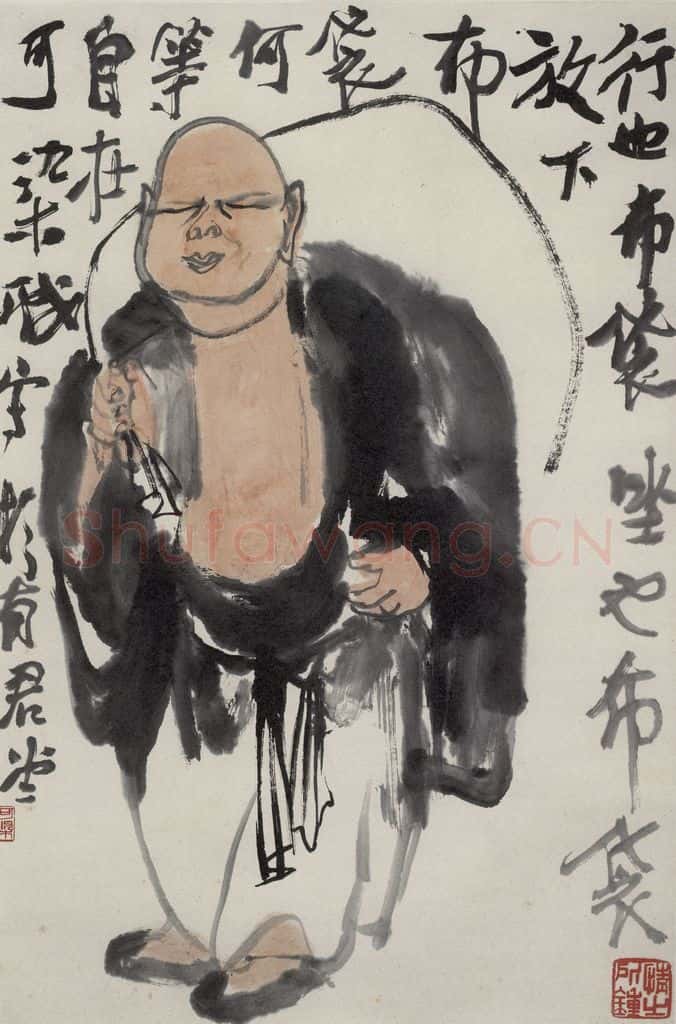 行也布袋坐也布袋
放下
布
袋
何
等
自在
可染戏写於有君堂
可染
情之所鍾
Shufawang.CN